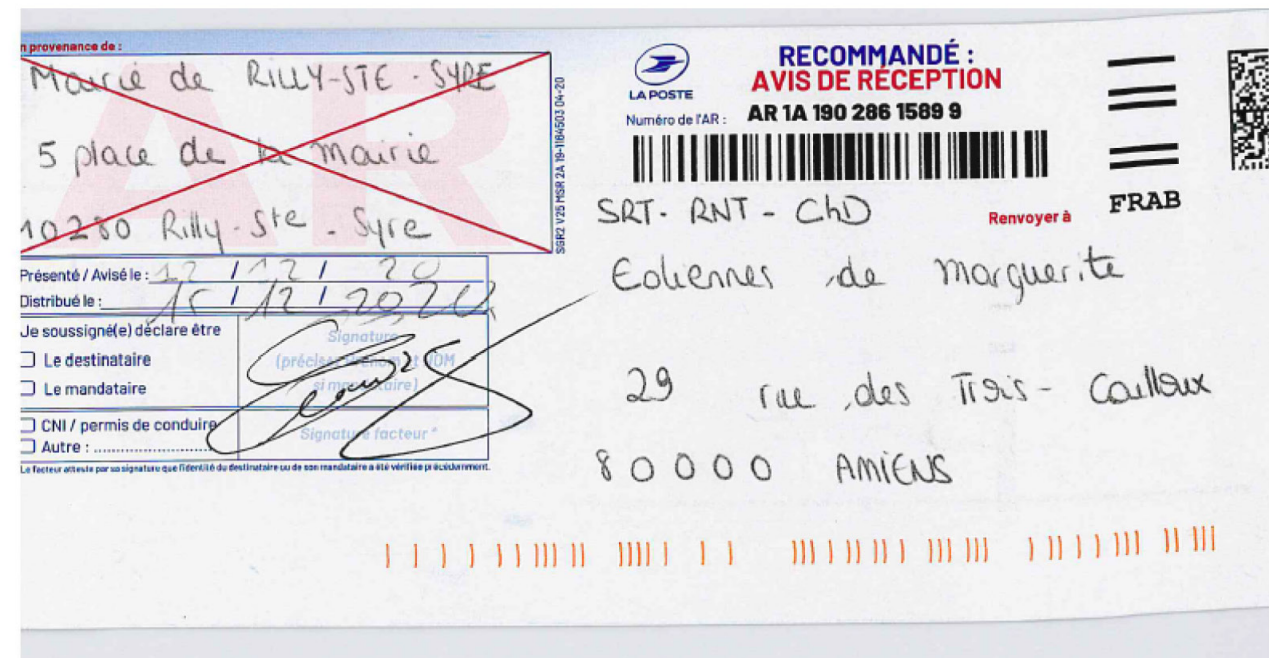 n provenance de :
Mairie de RILLY-STE-SYRE
5 place de la mairie
10280 Rilly-Ste-Syre
SGR2 V25 MSR 2A 19-1184503 04-20
Présenté / Avisé le : 12 / 12 / 20
Distribué le : 15 / 12 / 2020
Je soussigné(e) déclare être
Le destinataire
Le mandataire
CNI / permis de conduire
Autre :
Signature
(préciser Prénom et NOM
si mandataire)
Signature facteur *
Le facteur atteste par sa signature que l'identité du destinataire ou de son mandataire a été vérifiée précédemment.
AR
LA POSTE
RECOMMANDÉ :
AVIS DE RÉCEPTION
Numéro de l'AR : AR 1A 190 286 1589 9
FRAB
Renvoyer à
SRT-RNT-ChD
Eoliennes de Marguerite
29 rue des Trois-Cailloux
80000 AMIENS